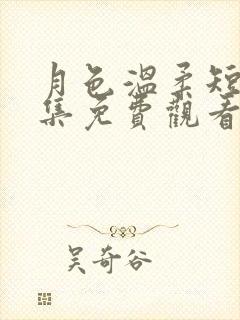 月色溫柔短
集免費觀看
吳奇谷